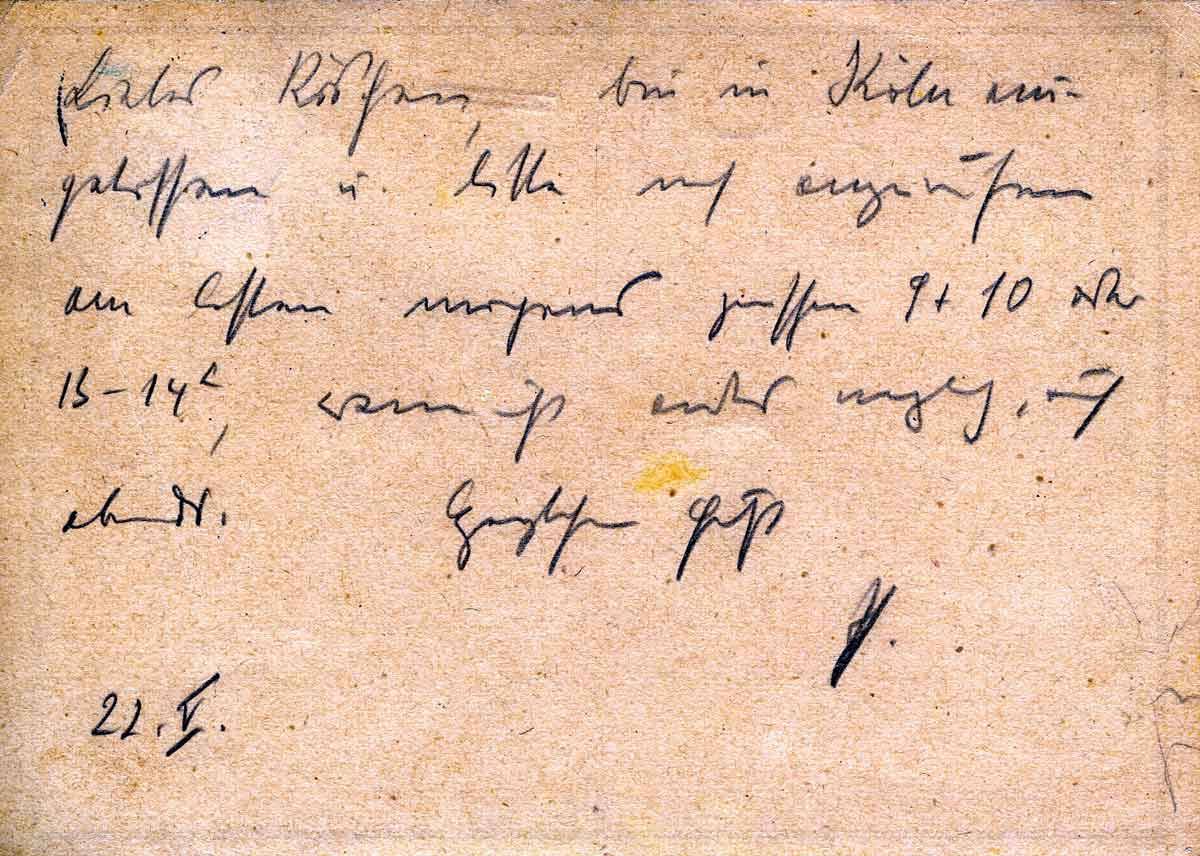 Liebes Röschen, bin in Köln ein-
getroffen u. bitte mich anzurufen
am besten morgens zwischen 9 + 10 oder
13 – 14 h, wenn nicht anders möglich, auch
abends. Herzlichen Gruß
22. V.